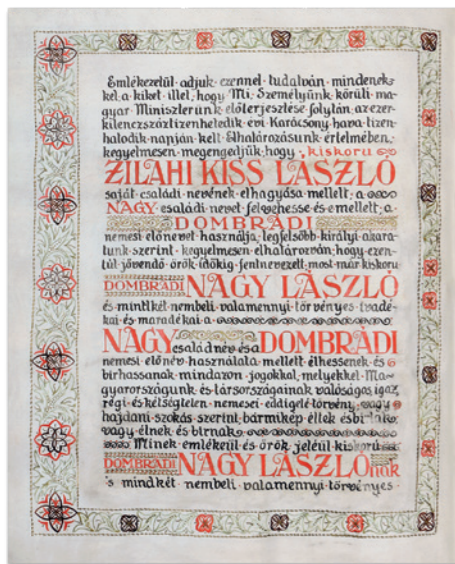 Emlékezetül adjuk ezennel tudatván mindenek=
kel, a kiket illet, hogy Mi, Személyünk körüli ma-
gyar Miniszterünk előterjesztése folytán, az ezer-
kilenczszáztizenhetedik évi Karácsony hava tizen-
hatodik napján kelt Elhatározásunk értelmében,
kegyelmesen megengedjük, hogy kiskoru
ZILAHI KISS LÁSZLÓ
saját családi nevének elhagyása mellett, a
NAGY családi nevet felvehesse és emellett, a
DOMBRÁDI
nemesi előnevet használja, legfelsőbb királyi akara-
tunk szerint kegyelmesen elhatározván, hogy ezen-
túl jövendő örök időkig fentnevezett most már kiskoru
DOMBRÁDI NAGY LÁSZLÓ
és mindkét nembeli valamennyi törvényes ivadé-
kai és maradékai a
NAGY családnév és a DOMBRÁDI
nemesi előnév használata mellett élhessenek és
birhassanak mindazon jogokkal, melyekkel Ma-
gyarországunk és társországainak valóságos igaz,
régi és kétségtelen nemesei eddigelé törvény, vagy
hajdani szokás szerint, bármikép éltek és birtak,
vagy élnek és birnak.
Minek emlékeül és örök jeléül kiskorú
DOMBRÁDI NAGY LÁSZLÓnak
's mindkét nembeli valamennyi törvényes